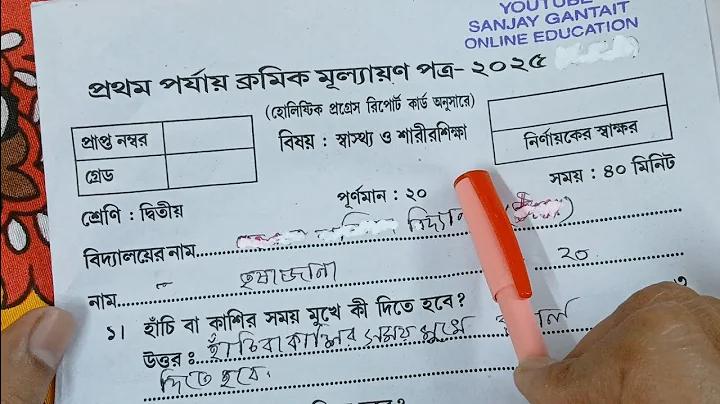 YOUTUBE
SANJAY GANTAIT
ONLINE EDUCATION
প্রথম পর্যায় ক্রমিক মূল্যায়ণ পত্র- ২০২৫
(হোলিস্টিক প্রগ্রেস রিপোর্ট কার্ড অনুসারে)
প্রাপ্ত নম্বর
গ্রেড
বিষয় : স্বাস্থ্য ও শারীরশিক্ষা
নির্ণায়কের স্বাক্ষর
শ্রেণি : দ্বিতীয়
পূর্ণমান : ২০
সময় : ৪০ মিনিট
বিদ্যালয়ের নাম
নাম
২০
১। হাঁচি বা কাশির সময় মুখে কী দিতে হবে?
৩
উত্তর ঃ হাঁচি বা কাশির সময় মুখে
দিতে হবে।